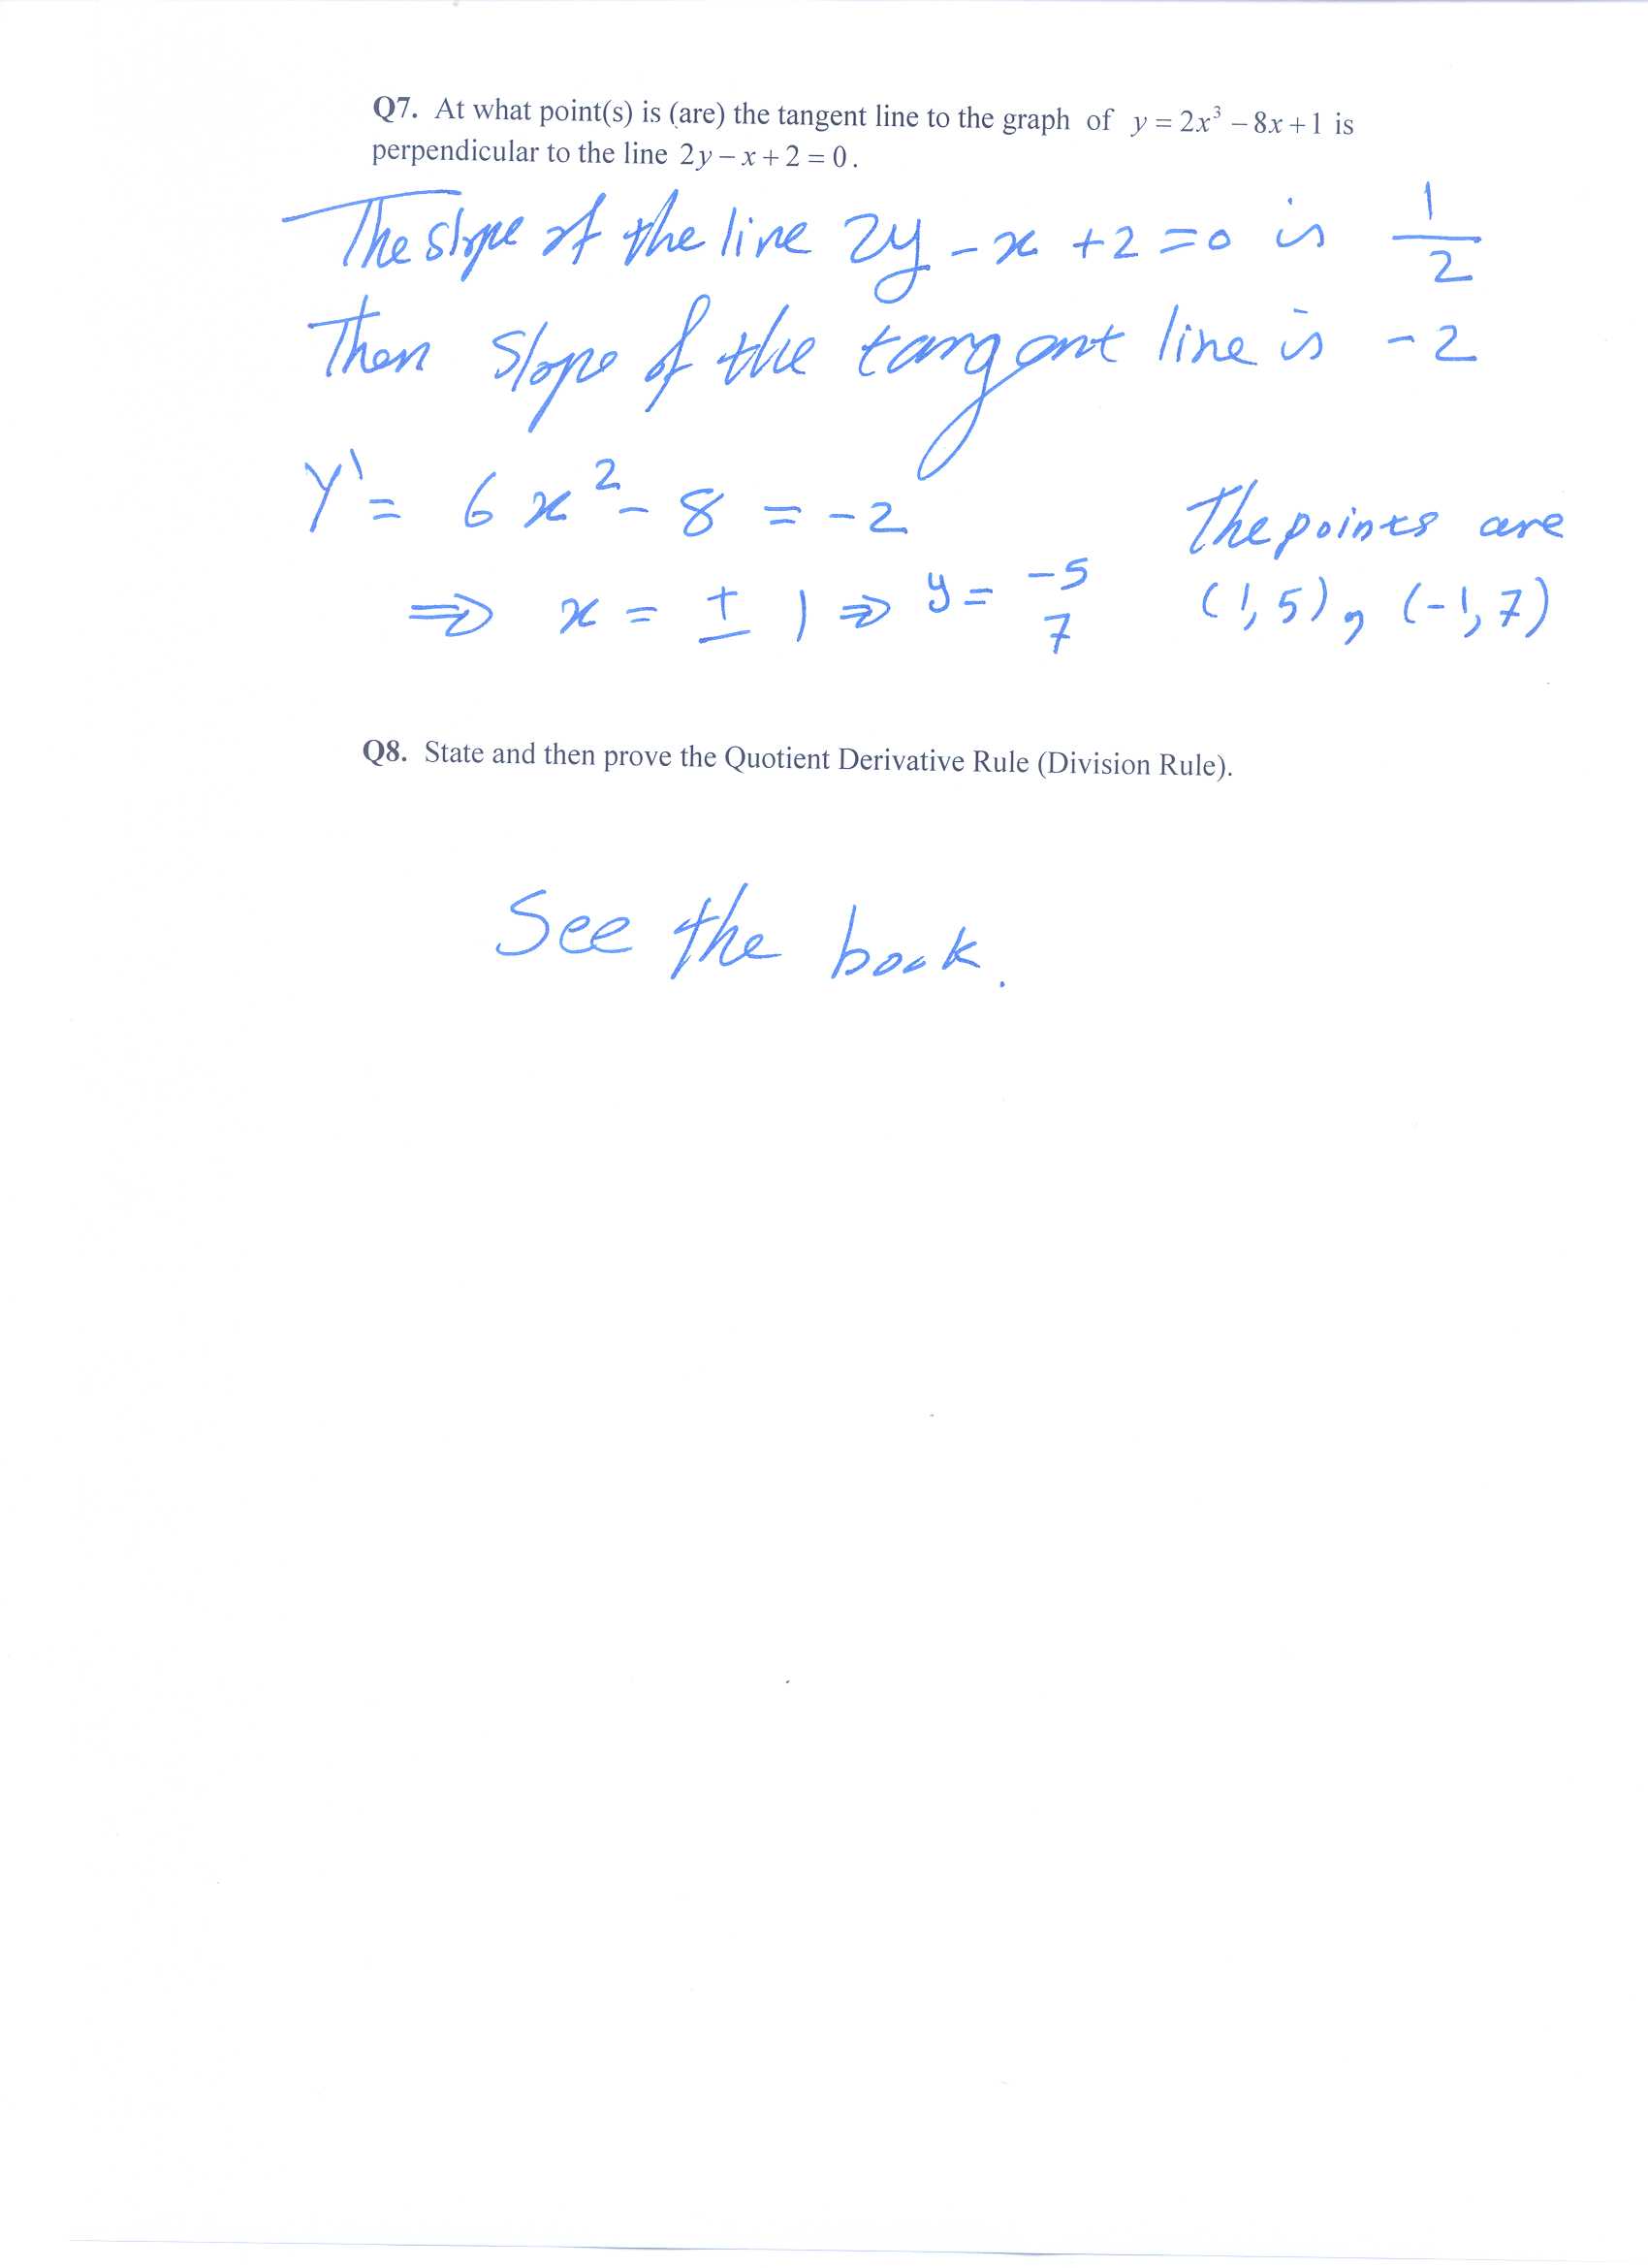 Q7. At what point(s) is (are) the tangent line to the graph of y = 2x³ − 8x + 1 is
perpendicular to the line 2y − x + 2 = 0.
The slope of the line 2y - x + 2 = 0 is 1/2
Then slope of the tangent line is -2
Y' = 6x² - 8 = -2
⇒ x = ± 1 ⇒ y = -5
7
The points are
(1, 5), (-1, 7)
Q8. State and then prove the Quotient Derivative Rule (Division Rule).
See the book.